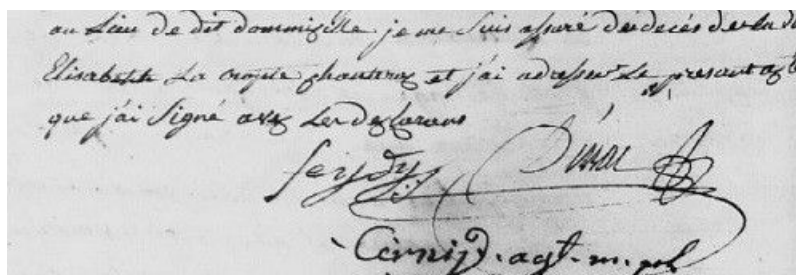 au Lieu de dit dommizille je me suis assuré du decés de la d
Elisabeth La crople chantrez et j'ai adresser Le present act
que j'ai Signé avez Les dezlarans
feydy Dinac
Cerniz. agt. m. pal